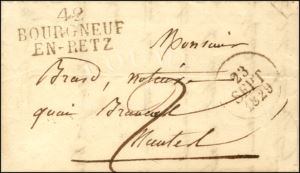 42
BOURGNEUF
EN-RETZ
Monsieur
23
SEPT
1829
Brard, notaire
quai Brancas
Nantes
2